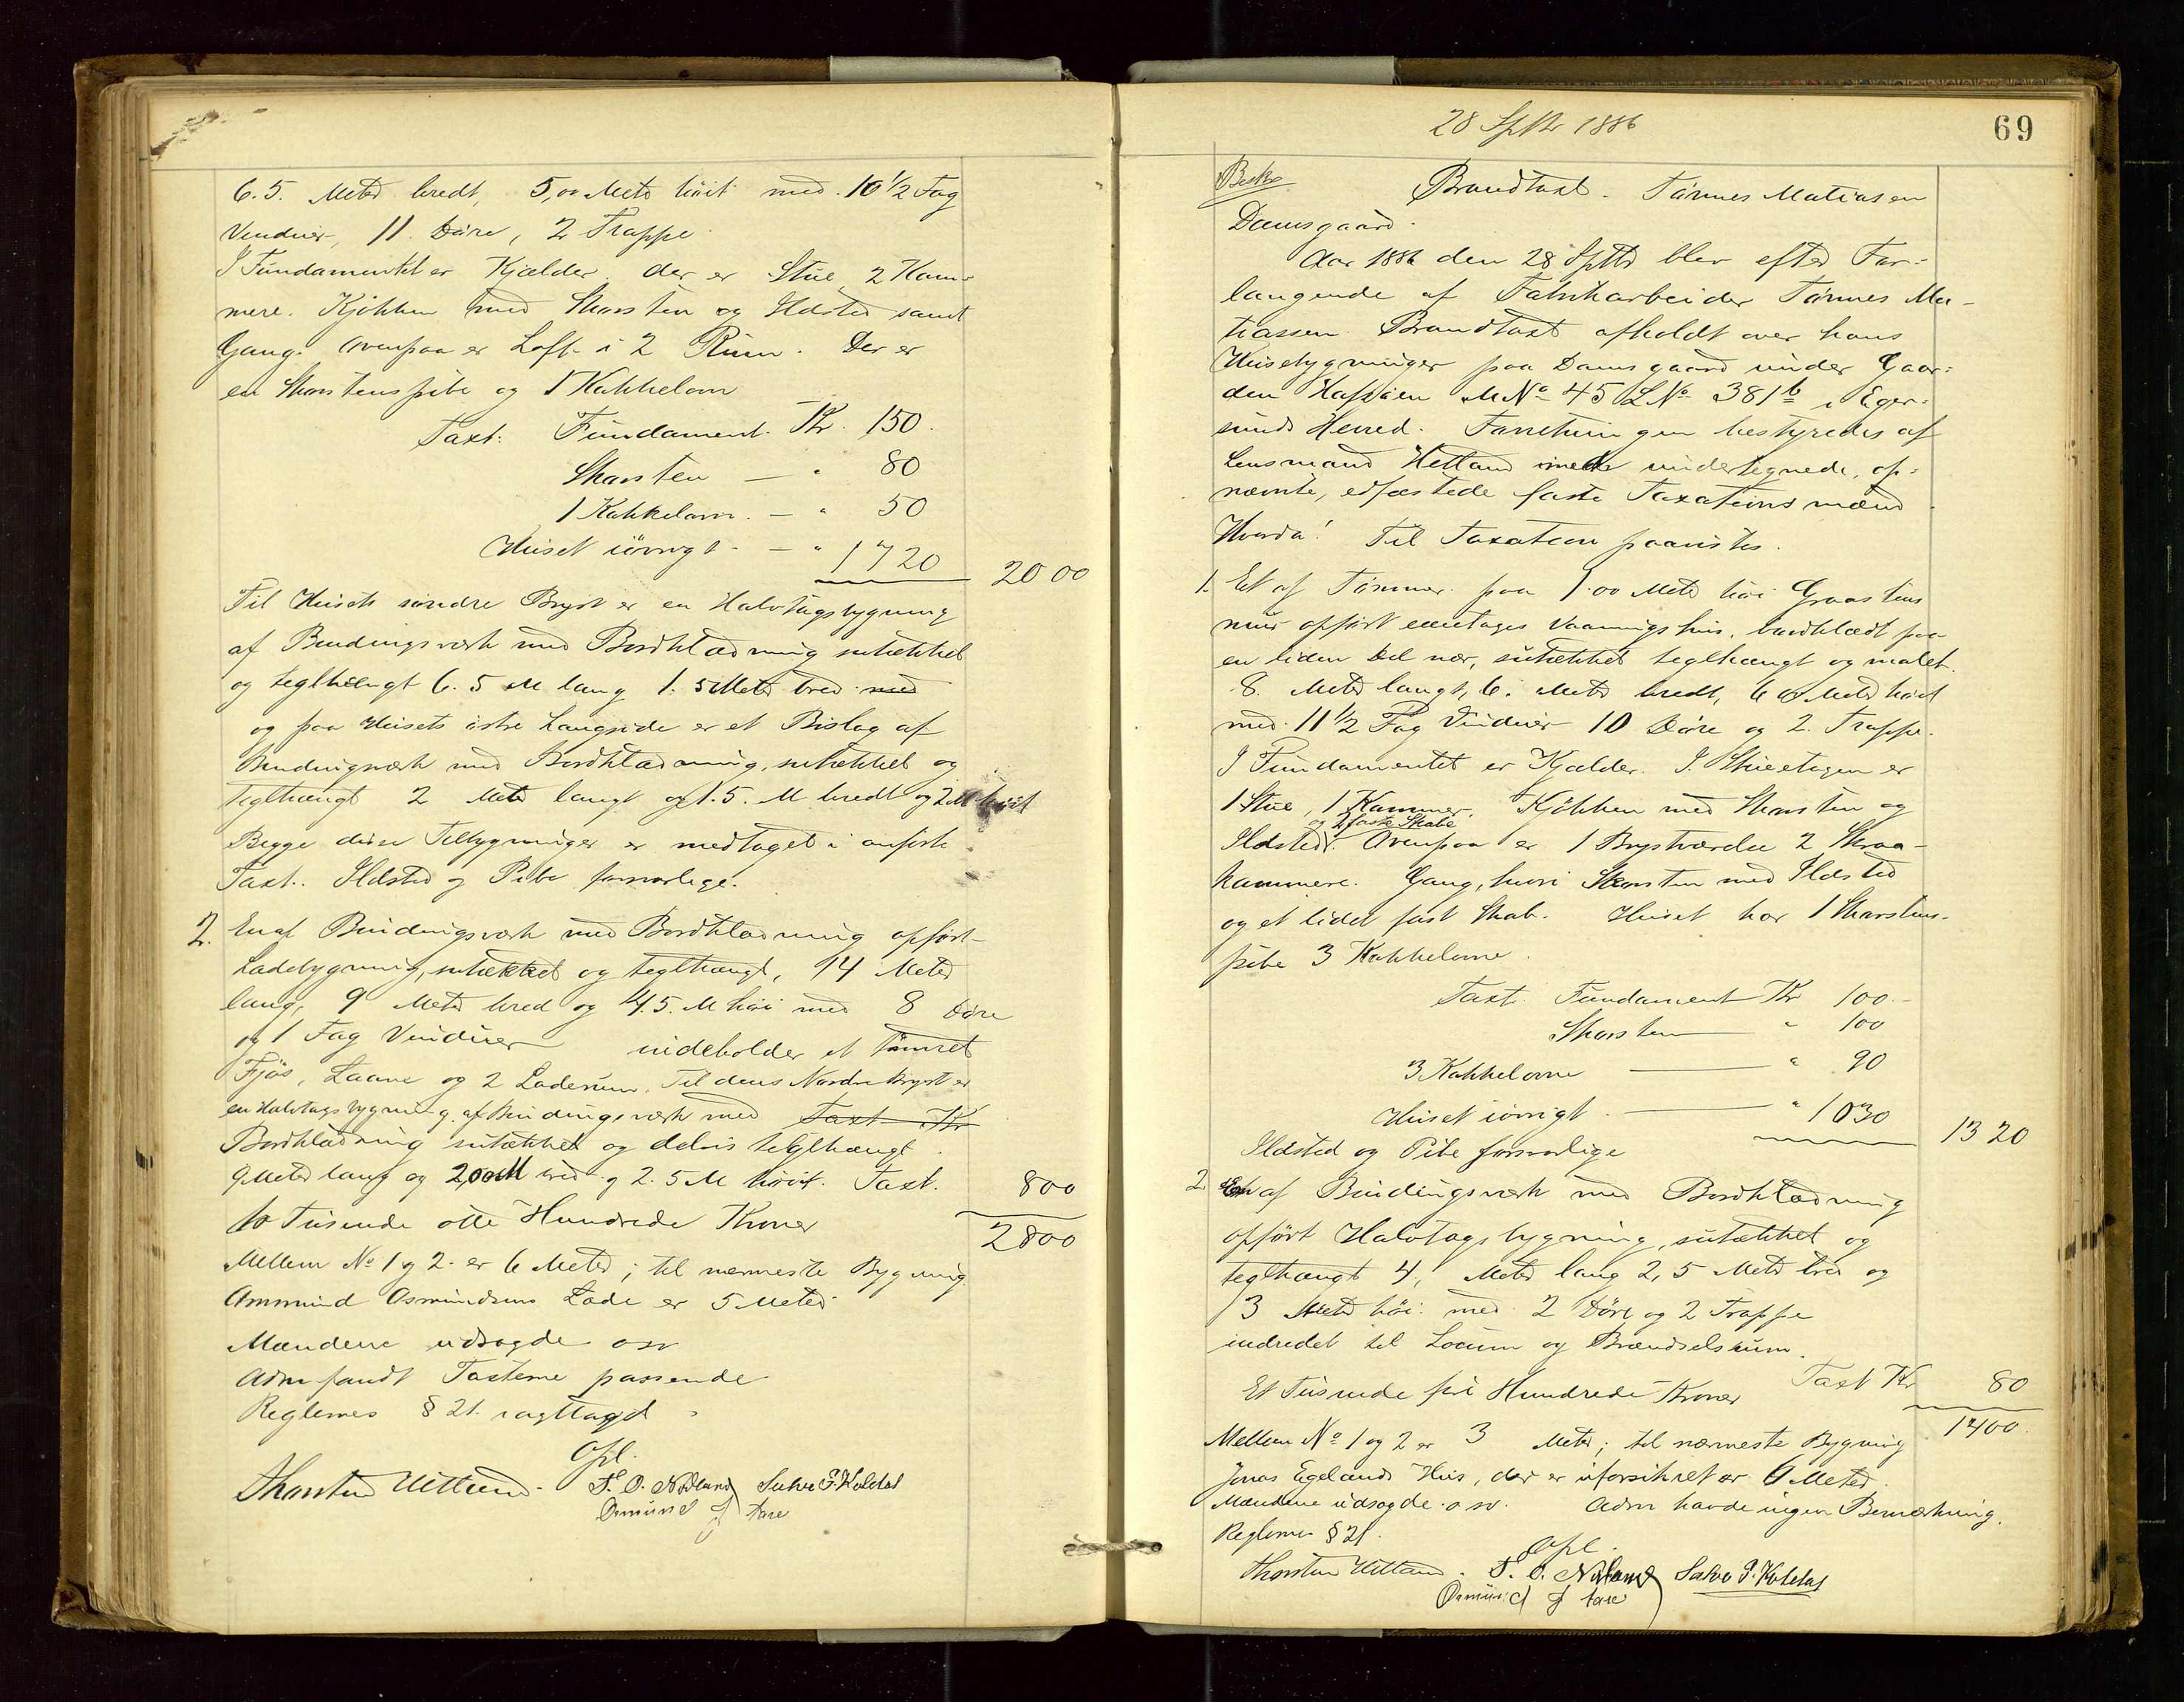 6.5. Meter bredt, 5,00 Meter höit med 10 1/2 Fag
Vinduer, 11 Döre, 2 Trappe
I Fundamentet er Kjælder. der er Stue 2 Kam-
mere. Kjökken med Skorsten og Ildsted samt
Gang. Ovenpaa er Loft i 2 Rum. Der er
en Skorstenspibe og 1 Kakkelovn
Taxt: Fundament Kr. 150.
Skorsten — " 80
1 Kakkelovn. — " 50
Huset iövrigt — " 1720 2000
Til Husets söndre Bryst er en Halvtagsbygning
af Bindingsværk med Bordklædning sutækket
og teglhængt 6.5 M lang 1.5 Meter bred med
og paa Husets östre Langside er et Bislag af
Bindingværk med Bordklædning, sutækket og
teglhængt 2 Meter langt og 1.5. M bredt og 2 M höit
Begge disse Tilbygninger er medtaget i anförte
Taxt. Ildsted og Pibe forsvarlige.
2. En af Bindingsværk med Bordklædning opfört
Ladebygning, sutækket og teglhængt, 14 Meter
lang, 9 Meter bred og 4.5. M höi med 8 Döre
og 1 Fag Vinduer indeholder et tömret
Fjös, Laave og 2 Laderum. Til dens Nordre Bryst er
en Halvtagsbygning af Bindingsværk med Taxt Kr
Bordklædning sutækket og delvis teglhængt.
9 Meter lang og 2,00 M bred og 2.5 M höit. Taxt. 800
to Tusende otte Hundrede Kroner 2800
Mellem No 1 og 2 er 6 Meter; til nærmeste Bygning
Ommund Osmundsens Lade er 5 Meter
Mændene udsagde osv
Adm fandt Taxterne passende
Reglernes § 21 iagttaget
Opl.
Thorsten Hetland. T. O. Nodland Salve T. Koldal
Osmund J Aase
28 Septbr 1886
69
Brandtaxt. Tönnes Matiasen
Damsgaard.
Aar 1886 den 28 Septbr blev efter For-
langende af Fabrikarbeider Tönnes Ma-
tiassen Brandtaxt afholdt over hans
Husebygninger paa Damsgaard under Gaar-
den Hafsöien MNo 45 LNo 381b i Eger-
sunds Herred. Forretningen bestyredes af
Lensmand Hetland med undertegnede, op-
nævnte, edfæstede faste Taxationsmænd
Hvorda! Til Taxation paavistes.
1. Et af Tömmer paa 1.00 Meter höi Graastens
mur opfört eenetages Vaaningshus, bordklædt paa
en liden Del nær, sutækket teglhængt og malet.
8. Meter langt, 6. Meter bredt, 6 0 Meter höit
med 11 1/2 Fag Vinduer 10 Döre og 2 Trappe.
I Fundamentet er Kjælder. I Stueetagen er
1 Stue, 1 Kammer. Kjökken med Skorsten og
og 2 faste Skabe
Ildsted. Ovenpaa er 1 Brystværelse 2 Skraa-
kammere. Gang, hvori Skorsten med Ildsted
og et lidet fast Skab. Huset har 1 Skorstens-
pibe 3 Kakkelovne.
Taxt Fundament Kr 100.—
Skorsten — " 100
3 Kakkelovne — " 90
Huset iövrigt — " 1030 1320
Ildsted og Pibe forsvarlige
2. En af Bindingsværk med Bordklædning
opfört Halvtagsbygning, sutækket og
teglhængt 4, Meter lang 2,5 Meter bred og
3 Meter höi med 2 Döre og 2 Trappe
indredet til Locum og Brændselsrum.
Taxt Kr 80
Et Tusende fire Hundrede Kroner 1400.
Mellem No 1 og 2 er 3 Meter; til nærmeste Bygning
Jonas Egelands Hus, der er uforsikret er 6 Meter.
Mændene udsagde osv. Adm havde ingen Bemærkning.
Reglernes § 21.
Opl.
Thorsten Hetland. T. O. Nodland Salve T. Koldal
Osmund J Aase